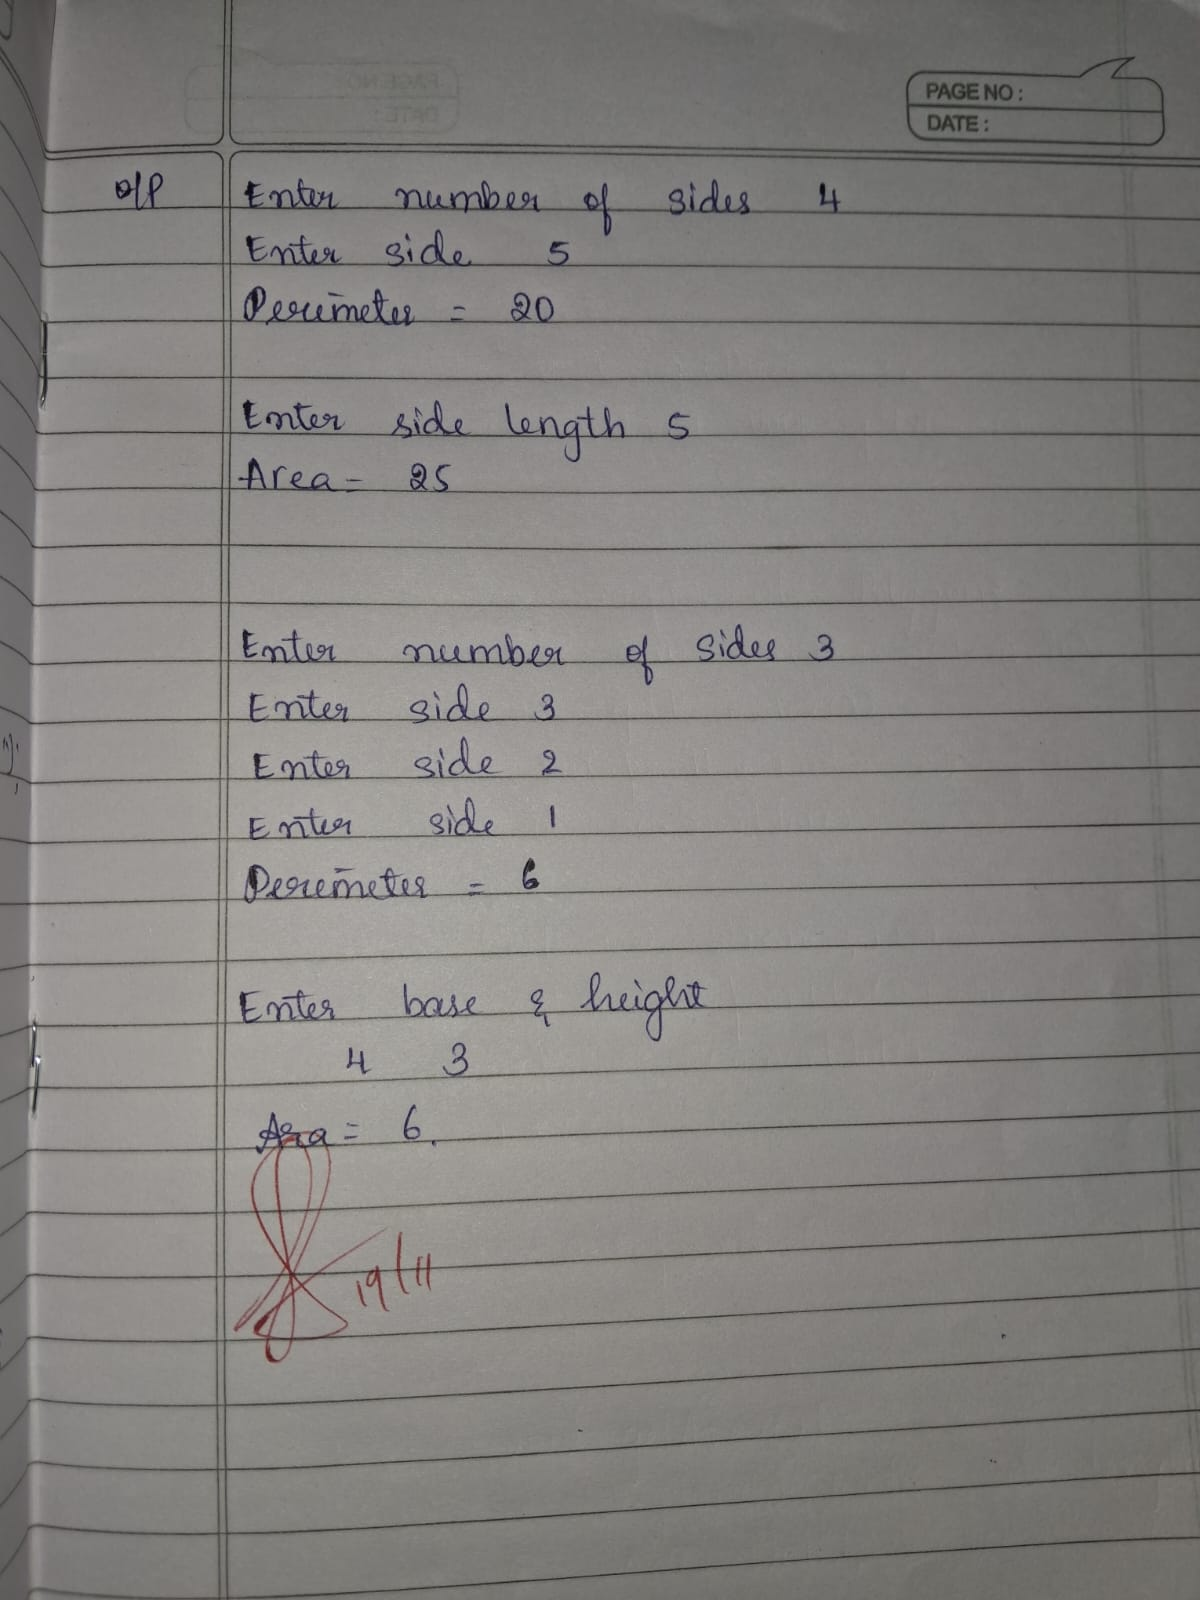 PAGE NO :
DATE :
O/P Enter number of sides 4
Enter side 5
Perimeter = 20
Enter side length 5
Area = 25
Enter number of sides 3
Enter side 3
Enter side 2
Enter side 1
Perimeter = 6
Enter base & height
4 3
Area = 6.
19/11